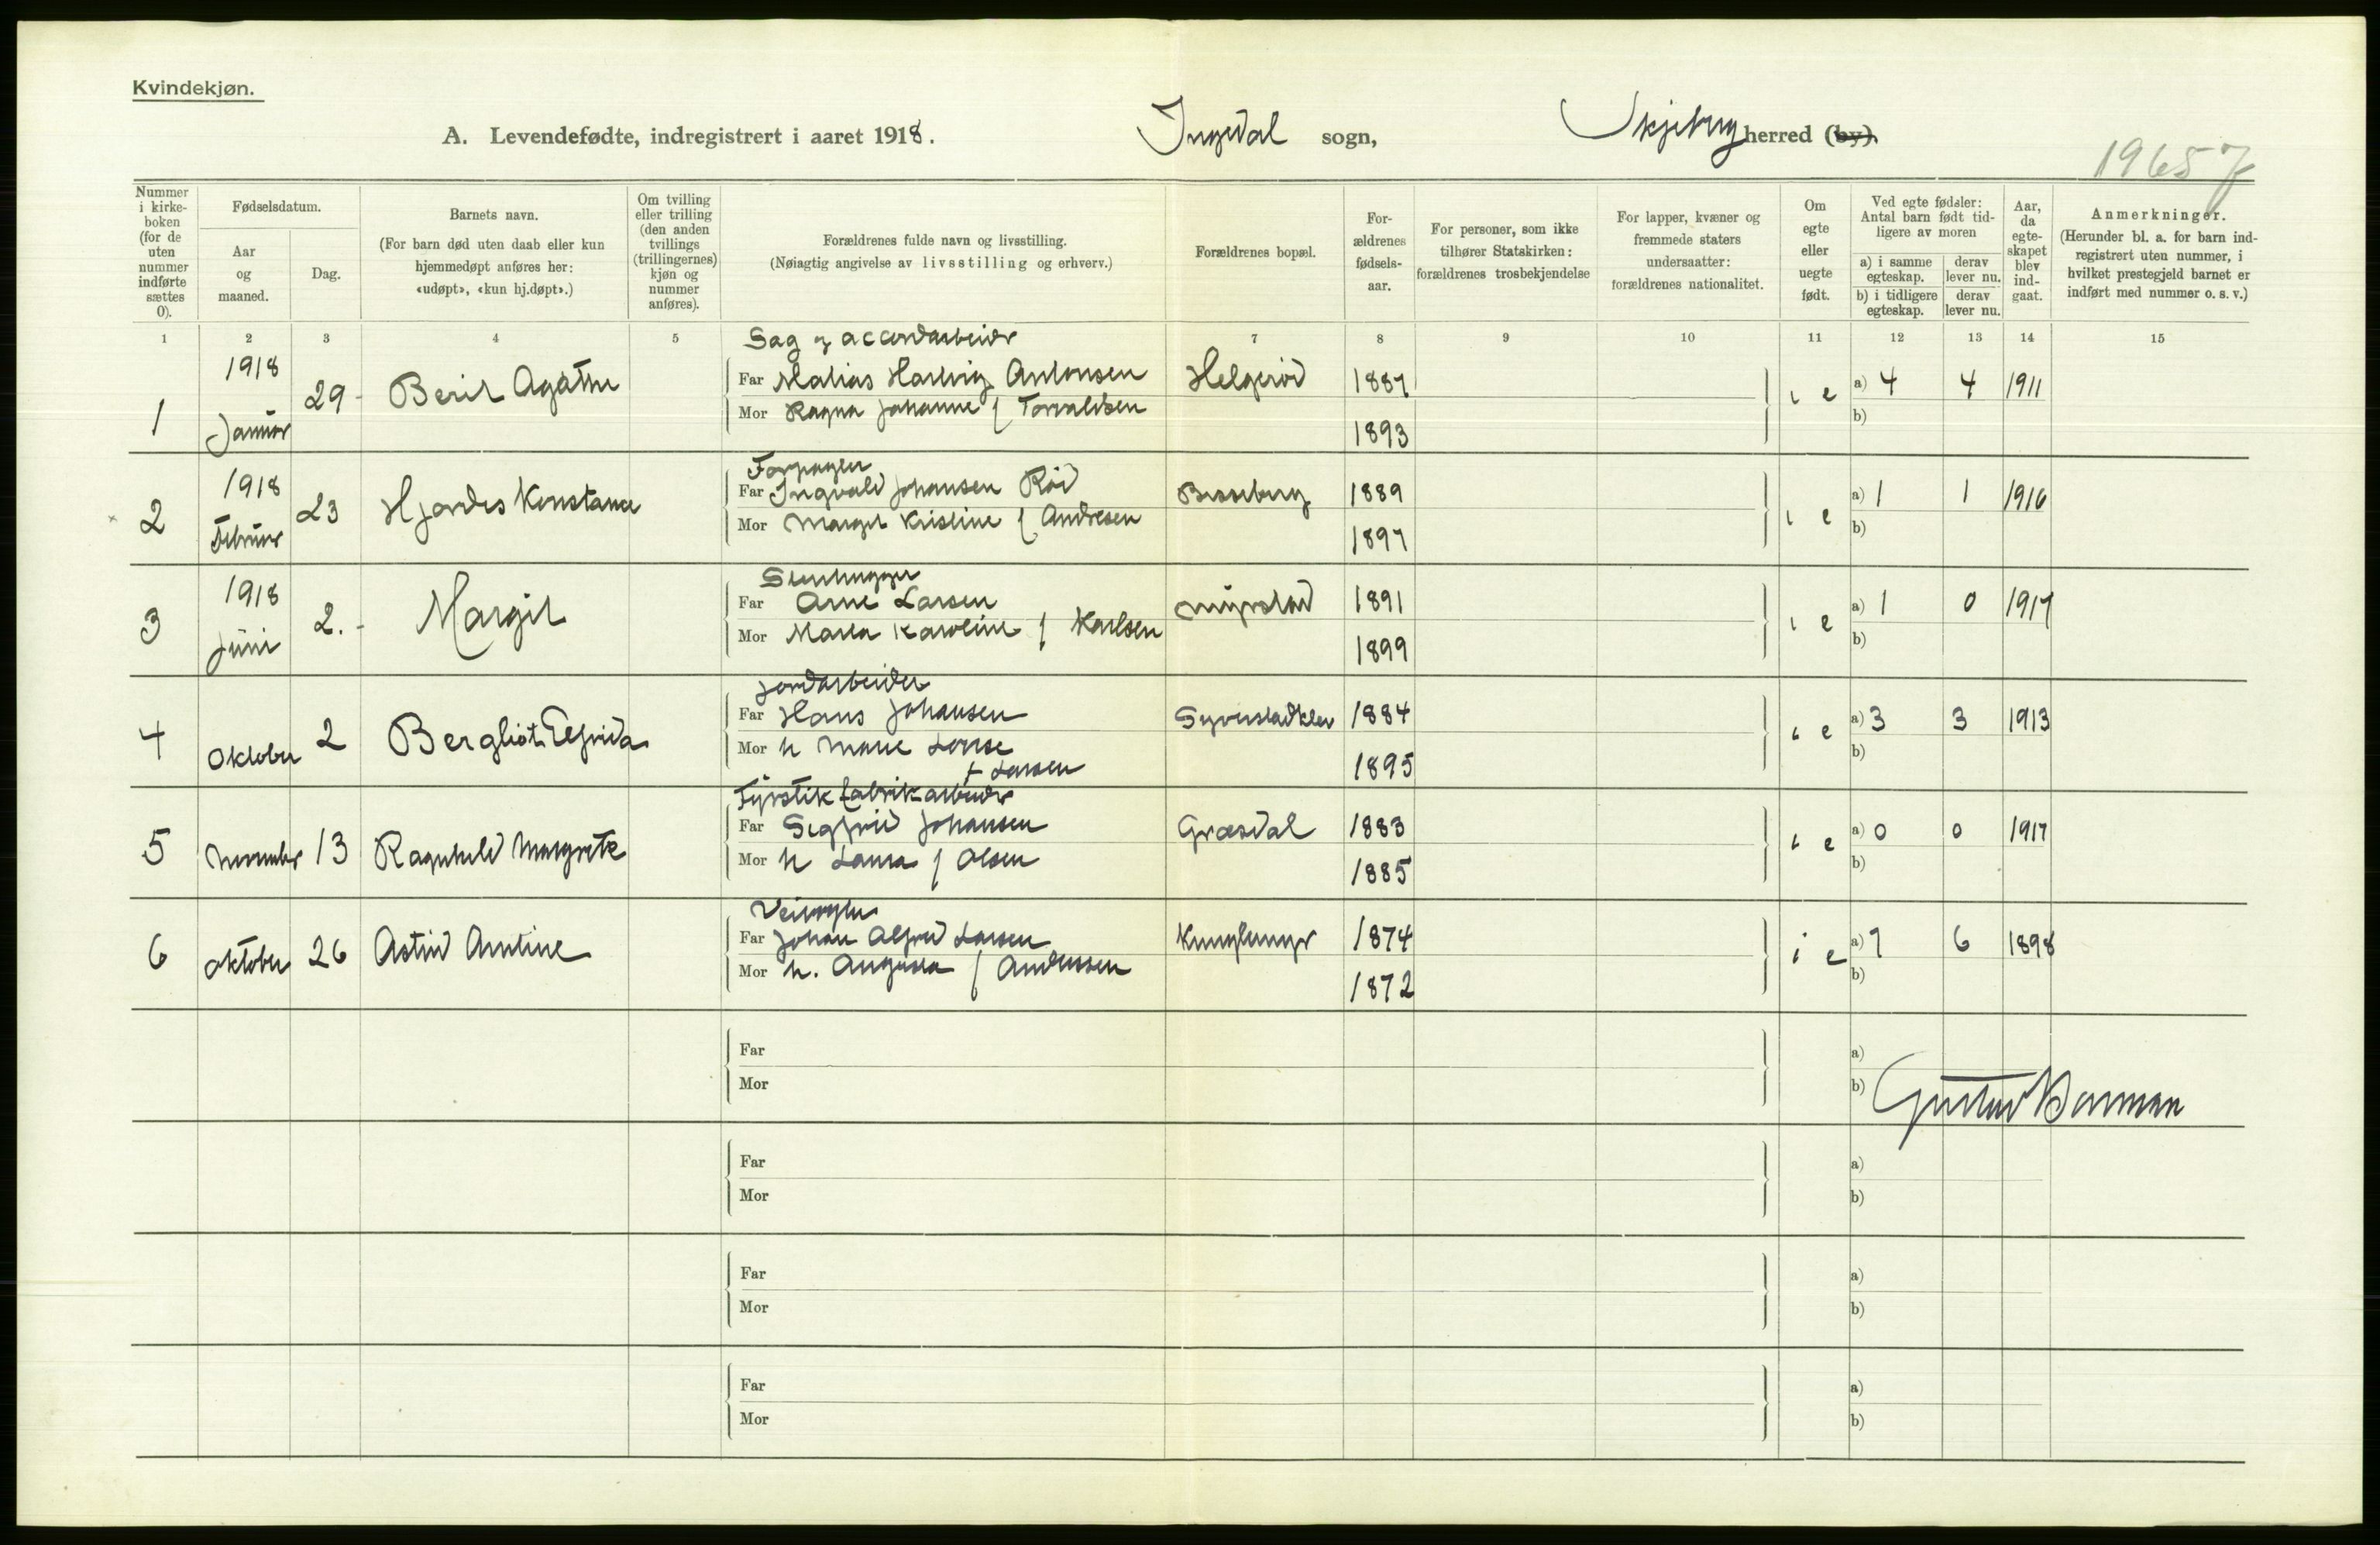 Kvindekjøn.
A. Levendefødte, indregistrert i aaret 1918. Ingedal sogn, Skjeberg herred (by).
19657
Nummer i kirkeboken (for de uten nummer indførte sættes 0).
Fødselsdatum.
Aar og maaned.
Dag.
Barnets navn.
(For barn død uten daab eller kun hjemmedøpt anføres her: «udøpt», «kun hj.døpt».)
Om tvilling eller trilling (den anden tvillings (trillingernes) kjøn og nummer anføres).
Forældrenes fulde navn og livsstilling.
(Nøiagtig angivelse av livsstilling og erhverv.)
Forældrenes bopæl.
For-ældrenes fødsels-aar.
For personer, som ikke tilhører Statskirken: forældrenes trosbekjendelse
For lapper, kvæner og fremmede staters undersaatter: forældrenes nationalitet.
Om egte eller uegte født.
Ved egte fødsler: Antal barn født tid-ligere av moren
a) i samme egteskap. derav lever nu.
b) i tidligere egteskap. derav lever nu.
Aar, da egte-skapet blev ind-gaat.
Anmerkninger.
(Herunder bl. a. for barn ind-registrert uten nummer, i hvilket prestegjeld barnet er indført med nummer o. s. v.)
1 2 3 4 5 7 8 9 10 11 12 13 14 15
Sag og accordarbeider
1 1918 Januar 29 Berit Agathe Far Matias Hartvig Antonsen Helgerød 1887 i e a) 4 4 1911
Mor Ragna Johanne f Torvaldsen 1893 b)
Forpagter
2 1918 Februar 23 Hjordis Konstance Far Ingvald Johansen Rød 1889 i e a) 1 1 1916
Mor Margit Kristine f Andresen 1897 b)
Stenhugger
3 1918 Juni 2. Margit Far Arne Larsen 1891 i e a) 1 0 1917
Mor Marta Karoline f Karlsen 1899 b)
Jordarbeider
4 Oktober 2 Bergliot Elfrida Far Hans Johansen 1884 i e a) 3 3 1913
Mor h Marie Lovise f Larsen 1895 b)
Fyrstikfabrikarbeider
5 November 13 Ragnhild Margrete Far Sigfrid Johansen Græsdal 1883 i e a) 0 0 1917
Mor h Laura f Olsen 1885 b)
Veivogter
6 oktober 26 Astrid Amtine Far Johan Alfred Larsen 1874 i e a) 7 6 1898
Mor h. Augusta f Andressen 1872 b)
Far a)
Mor b)
Gustav Barman
Far a)
Mor b)
Far a)
Mor b)
Far a)
Mor b)